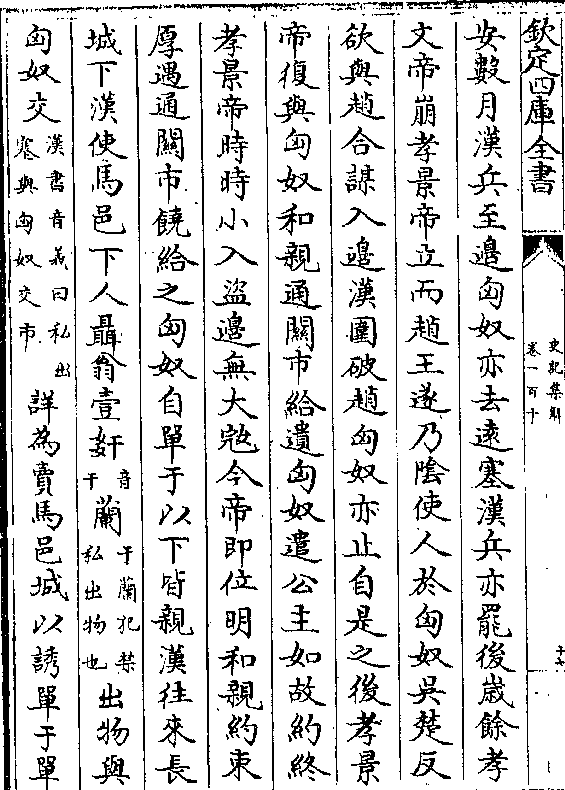 欽定四庫全書
史記集解
卷一百十
十七
安數月漢兵至邊匈奴亦去遠塞漢兵亦罷後歲餘孝
文帝崩孝景帝立而趙王遂乃陰使人於匈奴吳楚反
欲與趙合謀入邊漢圍破趙匈奴亦止自是之後孝景
帝復與匈奴和親通關市給遺匈奴遣公主如故約終
孝景帝時時小入盜邊無大㓂今帝即位明和親約束
厚遇通關市饒給之匈奴自單于以下皆親漢往來長
城下漢使馬邑下人聶翁壹奸音干蘭干蘭犯禁私出物也出物與
匈奴交漢書音義曰私出塞與匈奴交市詳為賣馬邑城以誘單于單